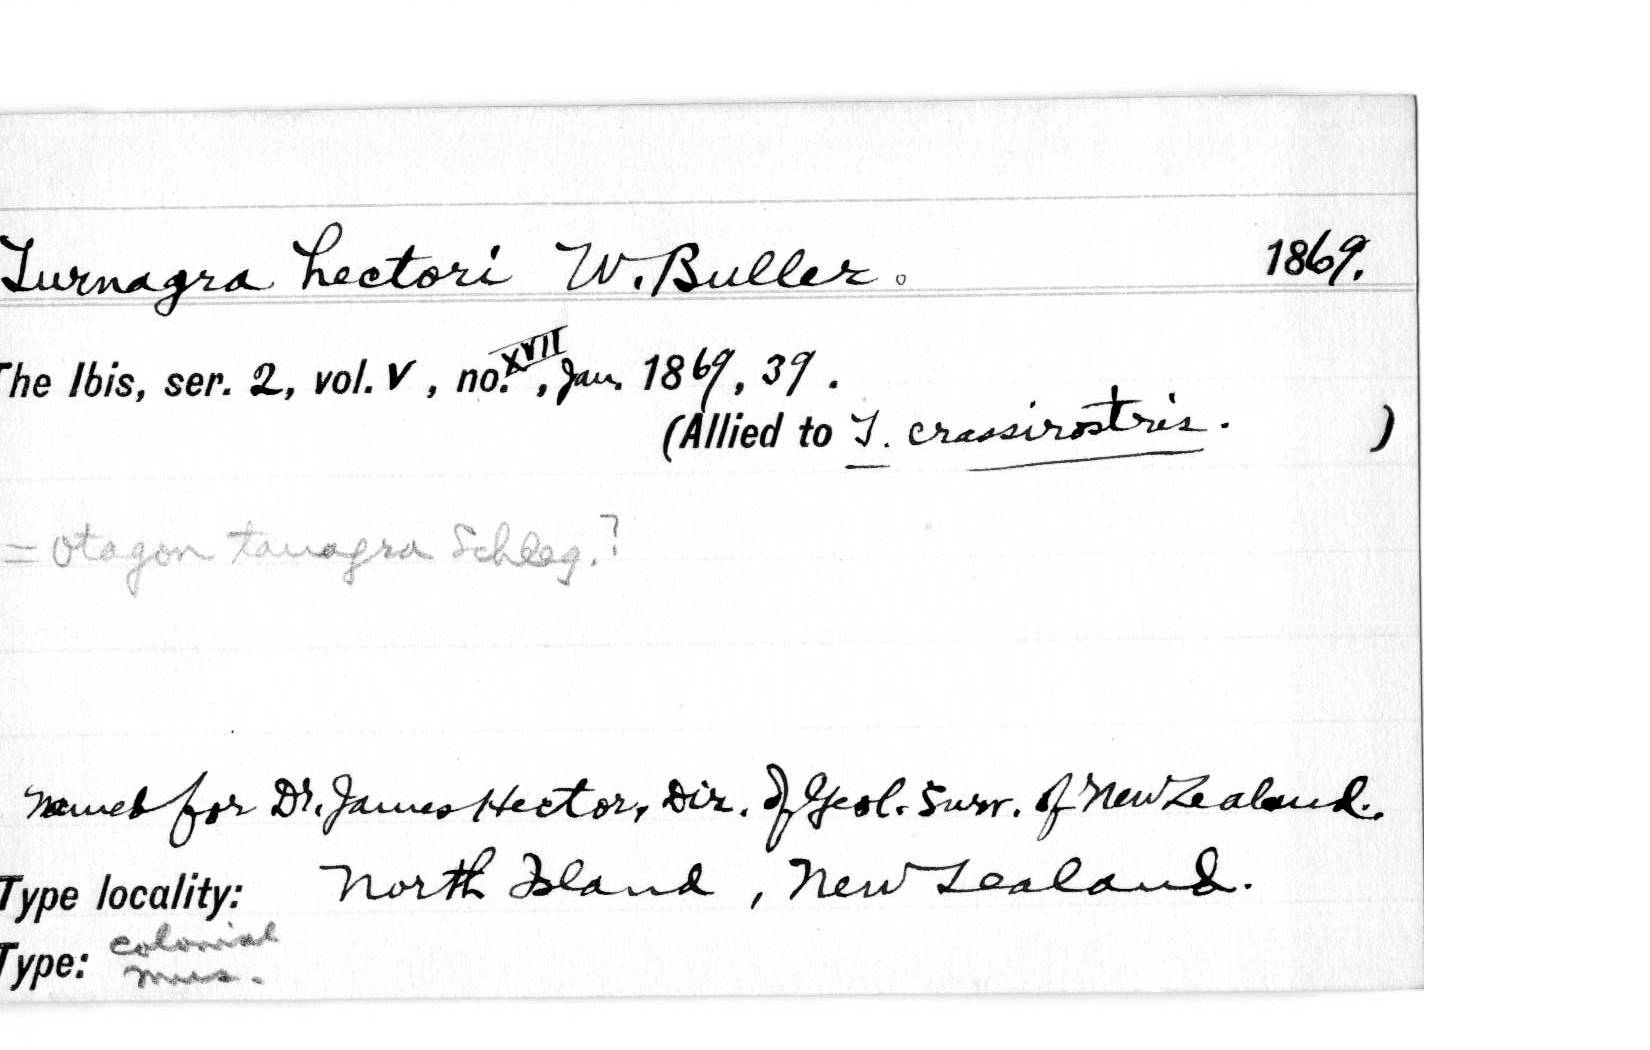 Turnagra hectori W. Buller. 1869.
The Ibis, ser. 2, vol. V, no. XVII, Jan. 1869, 39.
(Allied to T. crassirostris. )
= Otagon tanagra Schleg.?
Named for Dr. James Hector, Dir. of Geol. Surv. of New Zealand.
Type locality: North Island, New Zealand.
Type: Colonial
Mus.